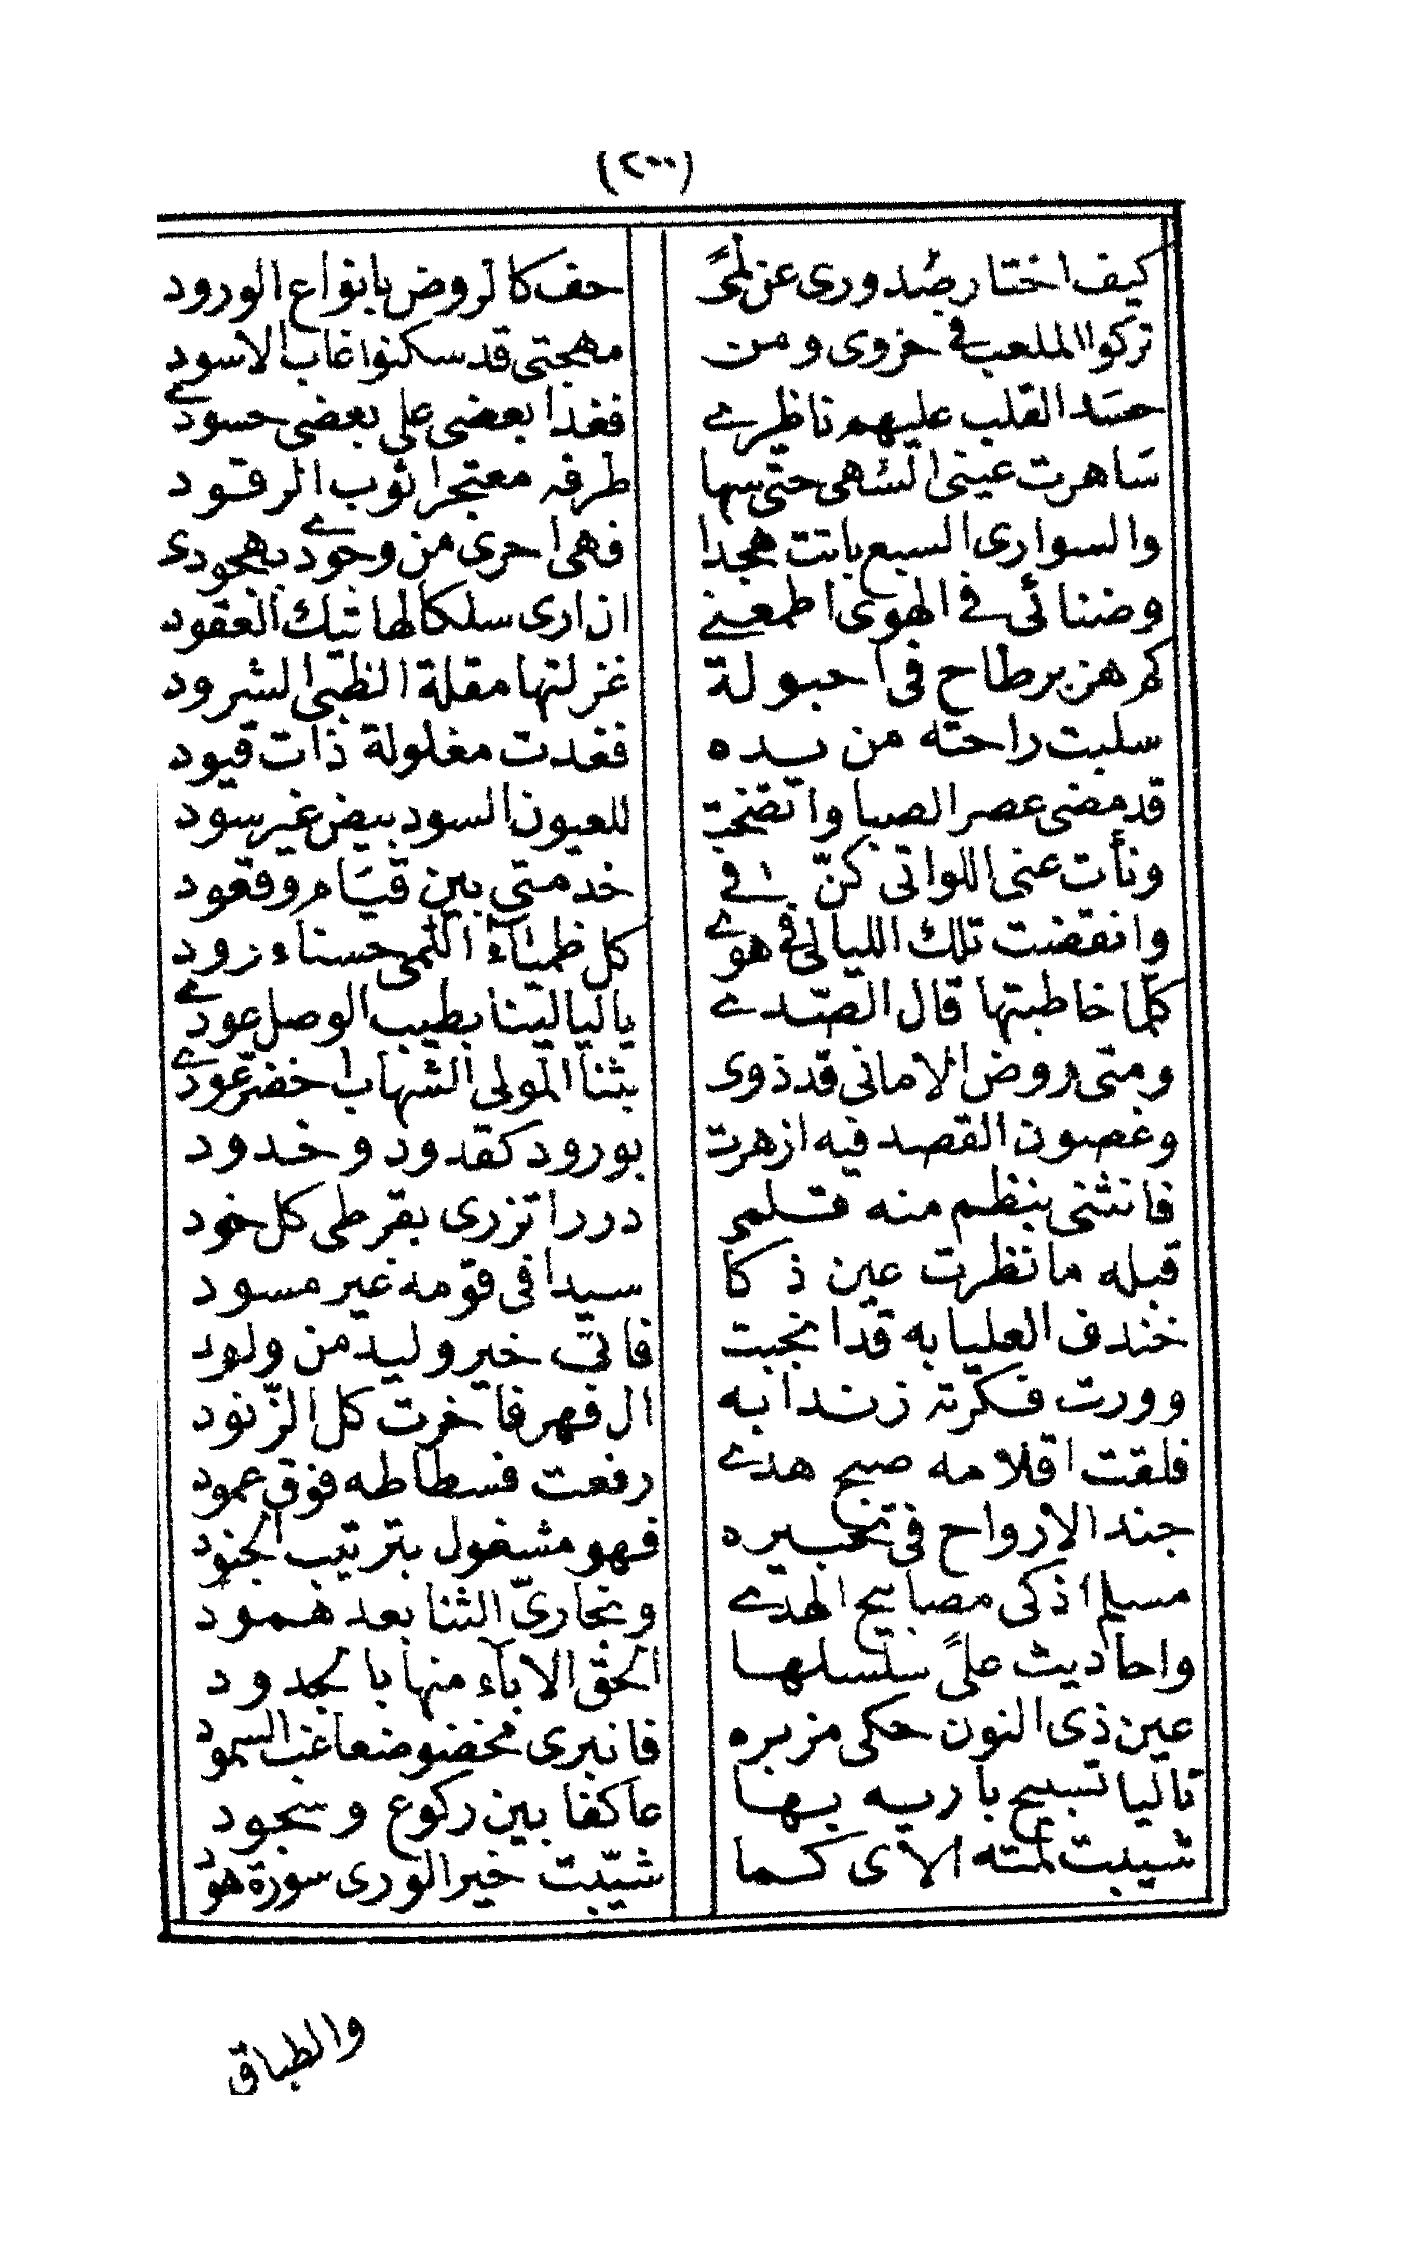 (٢٠٠)
كيف اختار صدورى عن لمى حف كالروض بانواع الورود
تركوا الملعب فى حزوى ومن مهجتى قد سكنوا غاب الاسود
حسد القلب عليهم ناظرے فغدا بعضى على بعضى حسودے
ساهرت عينى السهى حتى سها طرفه معتجرا ثوب الرقود
والسوارى السبع باتت هجدا فهى احرى من وجودے بهجودى
وضنائى فے الهوى اطمعنے ان ارى سلكا لها تيك العقود
كم هزبر طاح فى احبولة غزلتها مقلة الظبى الشرود
سلبت راحته من يده فغدت مغلولة ذات قيود
قد مضى عصر الصبا واتضحت للعيون السود بيض غير سود
ونأت عنى اللواتى كنّ فے خدمتى بين قيام وقعود
وانقضت تلك الليالى فے هوے كل ظمياء اللمى حسناء رود
كلما خاطبتها قال الصّدے ياليالينا بطيب الوصل عودے
ومتى روض الامانى قد ذوى بثنا المولى الشهاب اخضرّ عودے
وغصون القصد فيه ازهرت بورود كقدود وخدود
فانثنى ينظم منه قلمى دررا تزرى بقرطى كل خود
قبله ما نظرت عين ذكا سيدا فى قومه غير مسود
خندف العليا به قد انجبت فاتى خير وليد من ولود
وورت فكرته زندا به ال فهر فاخرت كل الزنود
فلقت اقلامه صبح هدے رفعت فسطاطه فوق عمود
جند الارواح فى تحبيره فهو مشغول بترتيب الجنود
مسلم اذكى مصابيح الهدے وبخارىّ الثنا بعد همود
واحاديث علىً سلسلها الحق الاباء منها بالجدود
عين ذى النون حكى مزبره فانبرى مخضوضعا غب السمود
تاليا تسبيح باريه بها عاكفا بين ركوع وسجود
شيبت لمته الاى كما شيّبت خير الورى سورة هود
والطباق